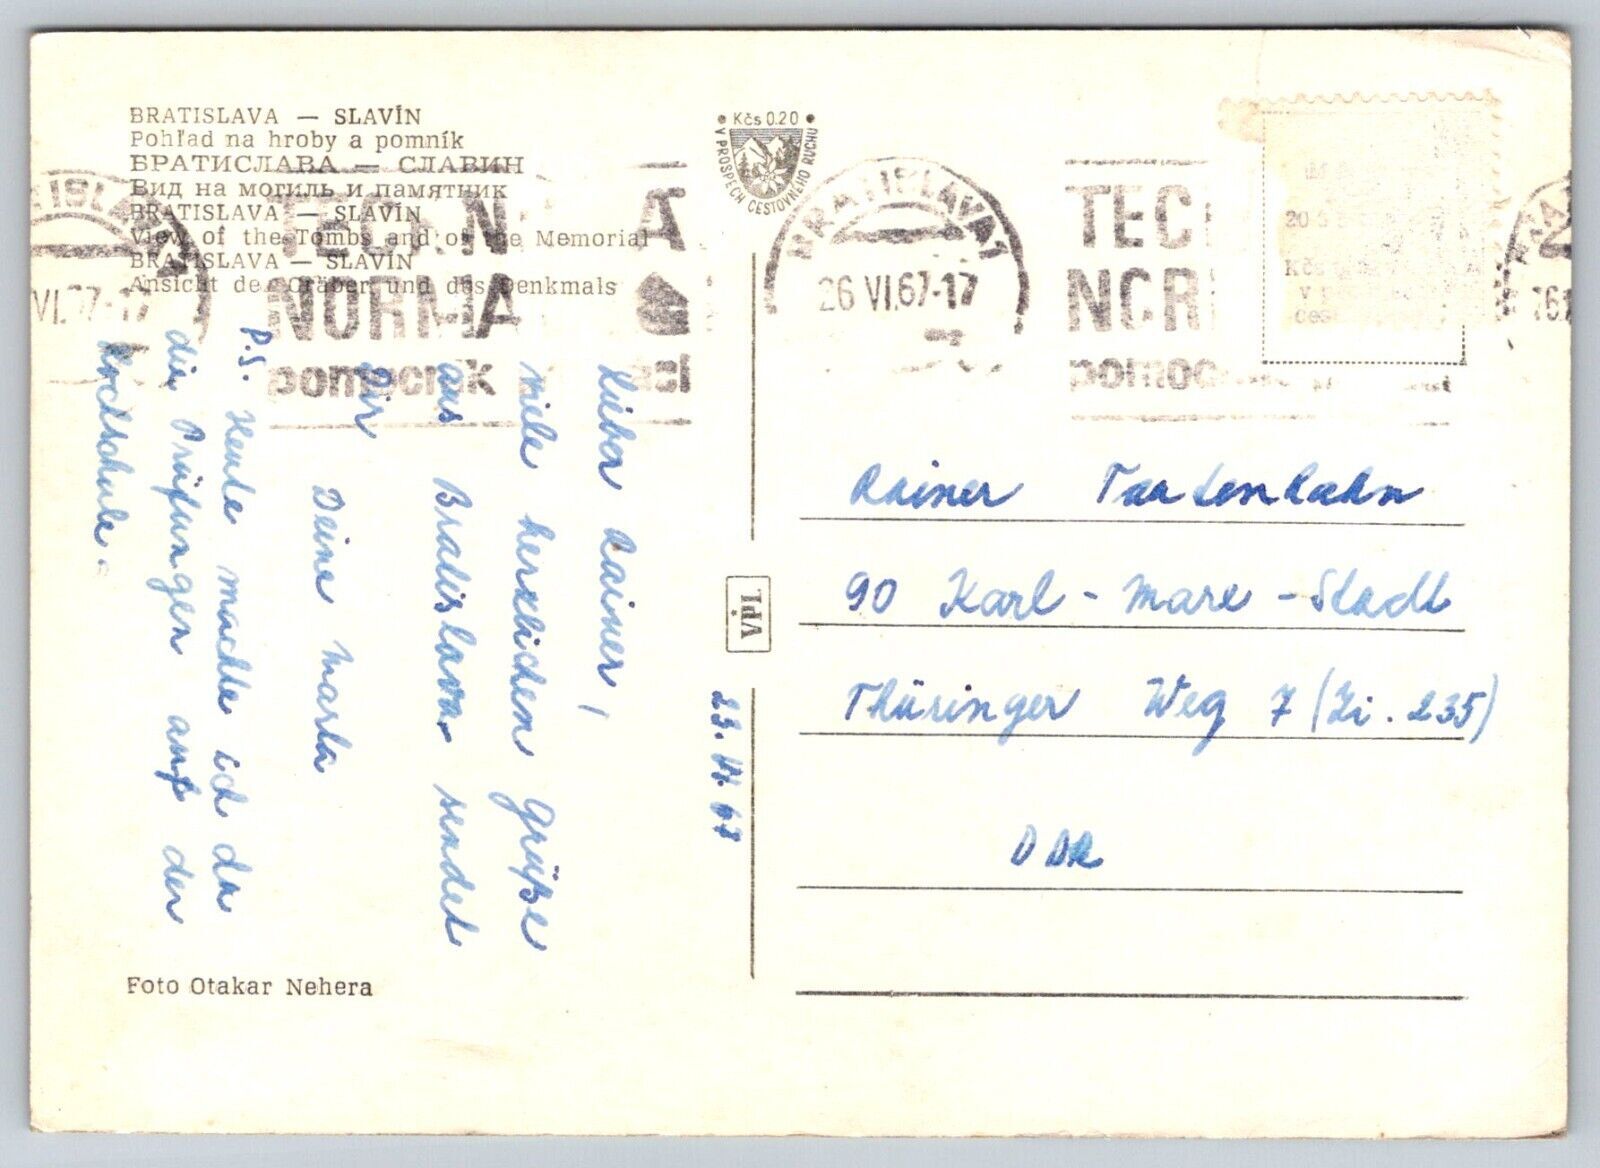 BRATISLAVA — SLAVÍN
Pohľad na hroby a pomník
БРАТИСЛАВА — СЛАВИН
Вид на могиль и памятник
BRATISLAVA — SLAVÍN
View of the Tombs and of the Memorial
BRATISLAVA — SLAVÍN
Ansicht der Gräber und des Denkmals
• Kčs 0.20 •
V PROSPECH CESTOVNÉHO RUCHU
NORMA
pomocník
VI.67-17
BRATISLAVA 1
26 VI.67-17
TEC
NOR
pomoc
Lieber Rainer,
viele herzlichen Grüße
aus Bratislava sendet
Dir
Deine Marta
P.S. Heute machte ich da
die Prüfungen auf der
Hochschule.
23. VI. 67
VPL
Rainer Tautenhahn
90 Karl-Marx-Stadt
Thüringer Weg 7 (Zi. 235)
DDR
Foto Otakar Nehera